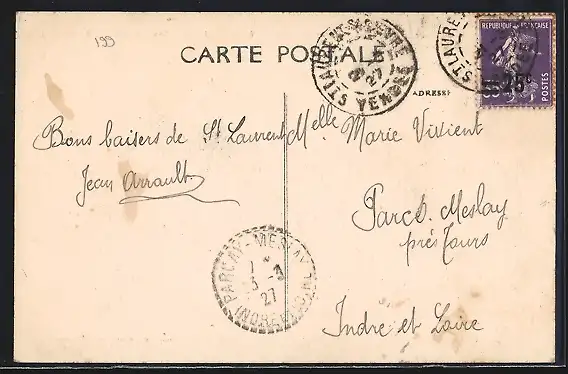 199
CARTE POSTALE
ST LAURENT S SEVRE
VENDÉE
27
ST LAURE
REPUBLIQUE FRANÇAISE
25c
POSTES
ADRESSE
Bons baisers de St Laurent
Jean Arrault
Melle Marie Vivient
Parce. Meslay
près Tours
Indre et Loire
PARCAY-MESLAY
5 -8
27
INDRE